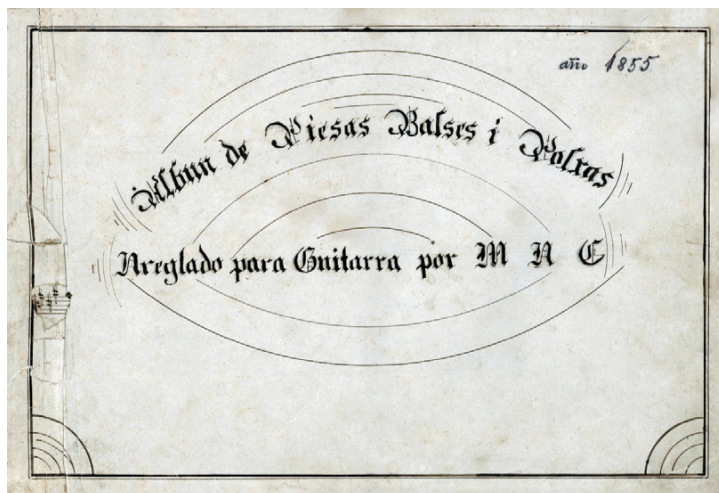 año 1855
Album de Piesas Balses i Polxas
Areglado para Guitarra por M A C